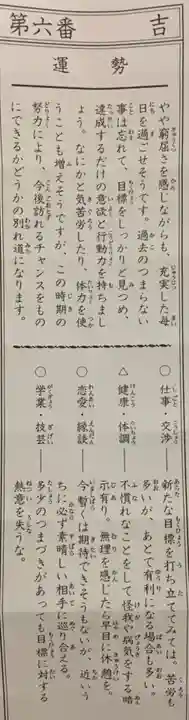 第六番 吉
運勢
やや窮屈さを感じながらも、充実した毎
日を過ごせそうです。過去のつまらない
事は忘れて、目標をしっかりと見つめ、
達成するだけの意欲と行動力を持ちまし
ょう。なにかと気苦労したり、体力を使
うことも増えそうですが、この時期の
努力により、今後訪れるチャンスをもの
にできるかどうかの別れ道になります。
○仕事・交渉――新たな目標を打ち立ててみては。苦労も
多いが、あとで有利になる場合も多い。
△健康・体調――不慣れなことをして怪我や病気をする暗
示有り。無理を感じたら早目に休憩を。
○恋愛・縁談――今暫くは期待できそうもないが、近いう
ちに必ず素晴しい相手に巡り合える。
○学業・技芸――多少のつまづきがあっても目標に対する
熱意を失うな。